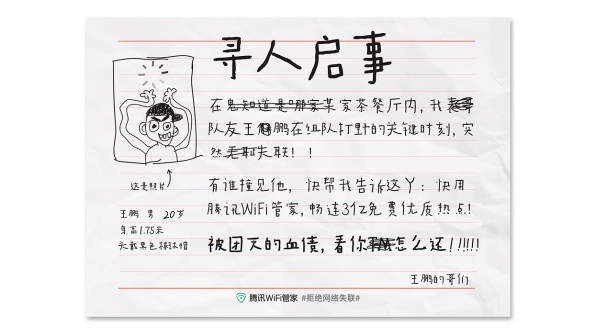 寻人启事
在鬼知道是哪家某家茶餐厅内,我
队友王鹏在组队打野的关键时刻,突
然失联!!
这是照片
王鹏 男 20岁
身高1.75米
头戴黑色棒球帽
有谁撞见他,快帮我告诉这丫:快用
腾讯WiFi管家,畅连3亿免费优质热点!
被团灭的血债,看你怎么还!!!!!!
王鹏的哥们
腾讯WiFi管家 #拒绝网络失联#